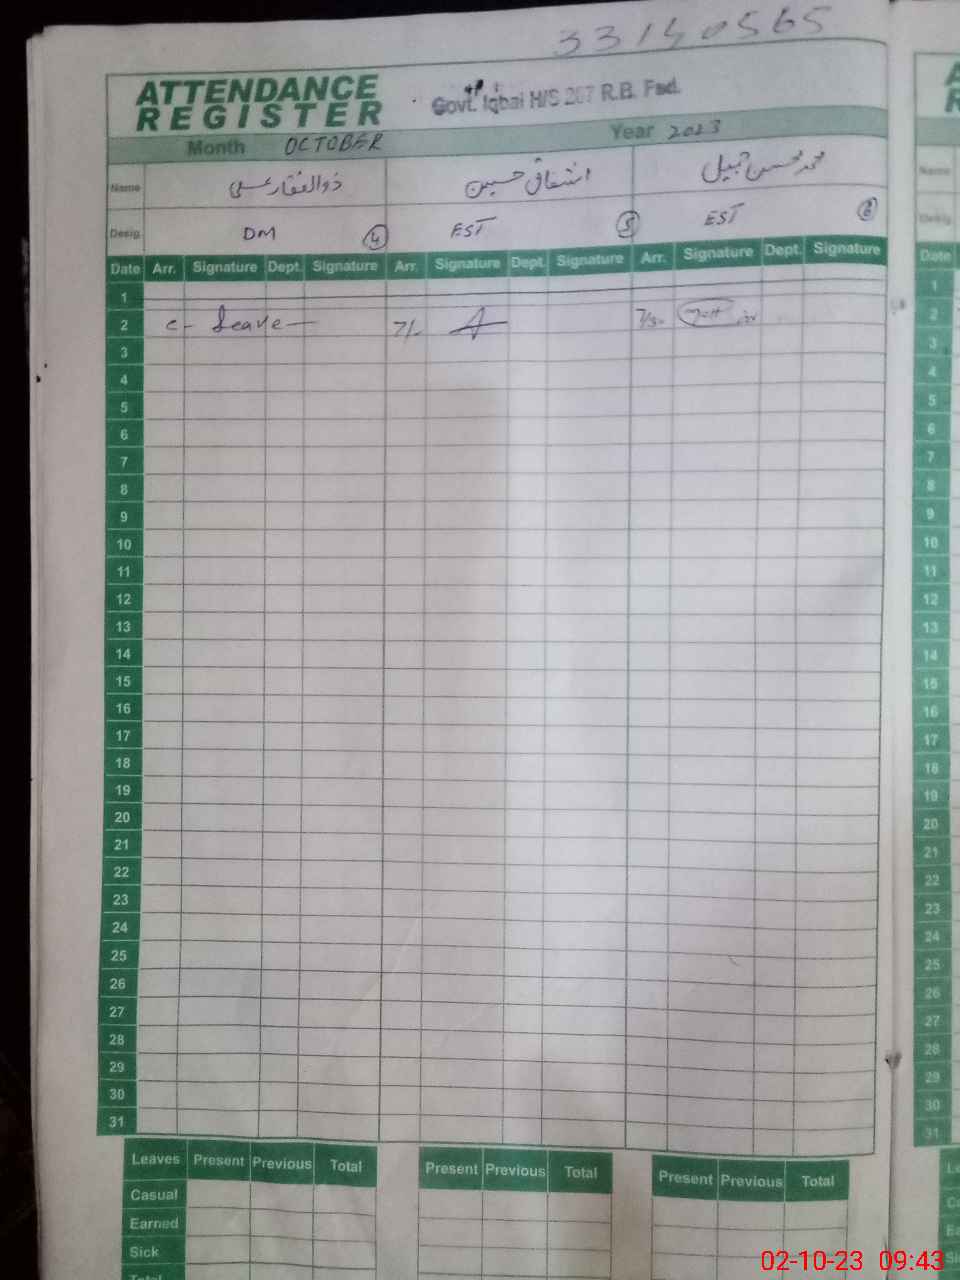 33140565
ATTENDANCE
REGISTER
Govt. Iqbal H/S 267 R.B. Fsd.
Month OCTOBER Year 2023
Name ذوالفقار علی اشفاق حسین محمد محسن جمیل
Desig. DM 4 EST 5 EST 6
Date Arr. Signature Dept. Signature Arr. Signature Dept. Signature Arr. Signature Dept. Signature
1
2 C- Leave
3
4
5
6
7
8
9
10
11
12
13
14
15
16
17
18
19
20
21
22
23
24
25
26
27
28
29
30
31
Leaves Present Previous Total Present Previous Total Present Previous Total
Casual
Earned
Sick
Total
Name
Desig.
Date
1
2
3
4
5
6
7
8
9
10
11
12
13
14
15
16
17
18
19
20
21
22
23
24
25
26
27
28
29
30
31
02-10-23 09:43